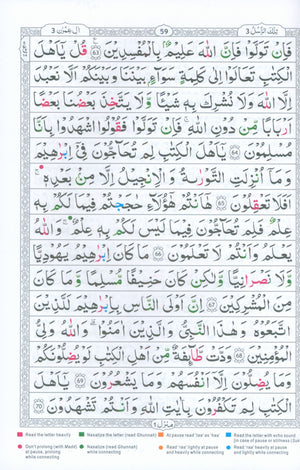 اٰل عِمْرٰن 3
59
تِلْكَ الرُّسُلُ 3
فَاِنْ تَوَلَّوْا فَاِنَّ اللّٰهَ عَلِيْمٌۢ بِالْمُفْسِدِيْنَ ﴿63﴾ قُلْ يٰٓاَهْلَ
الْكِتٰبِ تَعَالَوْا اِلٰى كَلِمَةٍ سَوَآءٍۢ بَيْنَنَا وَبَيْنَكُمْ اَلَّا نَعْبُدَ
اِلَّا اللّٰهَ وَلَا نُشْرِكَ بِهٖ شَيْـًٔا وَّلَا يَتَّخِذَ بَعْضُنَا بَعْضًا
اَرْبَابًا مِّنْ دُوْنِ اللّٰهِ ؕ فَاِنْ تَوَلَّوْا فَقُوْلُوا اشْهَدُوْا بِاَنَّا
مُسْلِمُوْنَ ﴿64﴾ يٰٓاَهْلَ الْكِتٰبِ لِمَ تُحَآجُّوْنَ فِيْٓ اِبْرٰهِيْمَ
وَمَآ اُنْزِلَتِ التَّوْرٰىةُ وَالْاِنْجِيْلُ اِلَّا مِنْۢ بَعْدِهٖ ؕ
اَفَلَا تَعْقِلُوْنَ ﴿65﴾ هٰٓاَنْتُمْ هٰٓؤُلَآءِ حٰجَجْتُمْ فِيْمَا لَكُمْ بِهٖ
عِلْمٌ فَلِمَ تُحَآجُّوْنَ فِيْمَا لَيْسَ لَكُمْ بِهٖ عِلْمٌ ؕ وَاللّٰهُ
يَعْلَمُ وَاَنْتُمْ لَا تَعْلَمُوْنَ ﴿66﴾ مَا كَانَ اِبْرٰهِيْمُ يَهُوْدِيًّا
وَّلَا نَصْرَانِيًّا وَّلٰكِنْ كَانَ حَنِيْفًا مُّسْلِمًا ؕ وَمَا كَانَ
مِنَ الْمُشْرِكِيْنَ ﴿67﴾ اِنَّ اَوْلَى النَّاسِ بِاِبْرٰهِيْمَ لَلَّذِيْنَ
اتَّبَعُوْهُ وَهٰذَا النَّبِيُّ وَالَّذِيْنَ اٰمَنُوْا ؕ وَاللّٰهُ وَلِيُّ
الْمُؤْمِنِيْنَ ﴿68﴾ وَدَّتْ طَّآئِفَةٌ مِّنْ اَهْلِ الْكِتٰبِ لَوْ يُضِلُّوْنَكُمْ ؕ
وَمَا يُضِلُّوْنَ اِلَّآ اَنْفُسَهُمْ وَمَا يَشْعُرُوْنَ ﴿69﴾ يٰٓاَهْلَ
الْكِتٰبِ لِمَ تَكْفُرُوْنَ بِاٰيٰتِ اللّٰهِ وَاَنْتُمْ تَشْهَدُوْنَ ﴿70﴾
Read the letter heavily
Nasalize the letter (read Ghunnah)
At pause read 'taa' as 'haa'
Read the letter with echo sound
Don't prolong (with Madd) at pause, prolong while connecting
Nasalize (read Ghunnah) while connecting
Read 'raa' lightly at pause and heavily while connecting
Read 'raa' heavily at pause and lightly while connecting